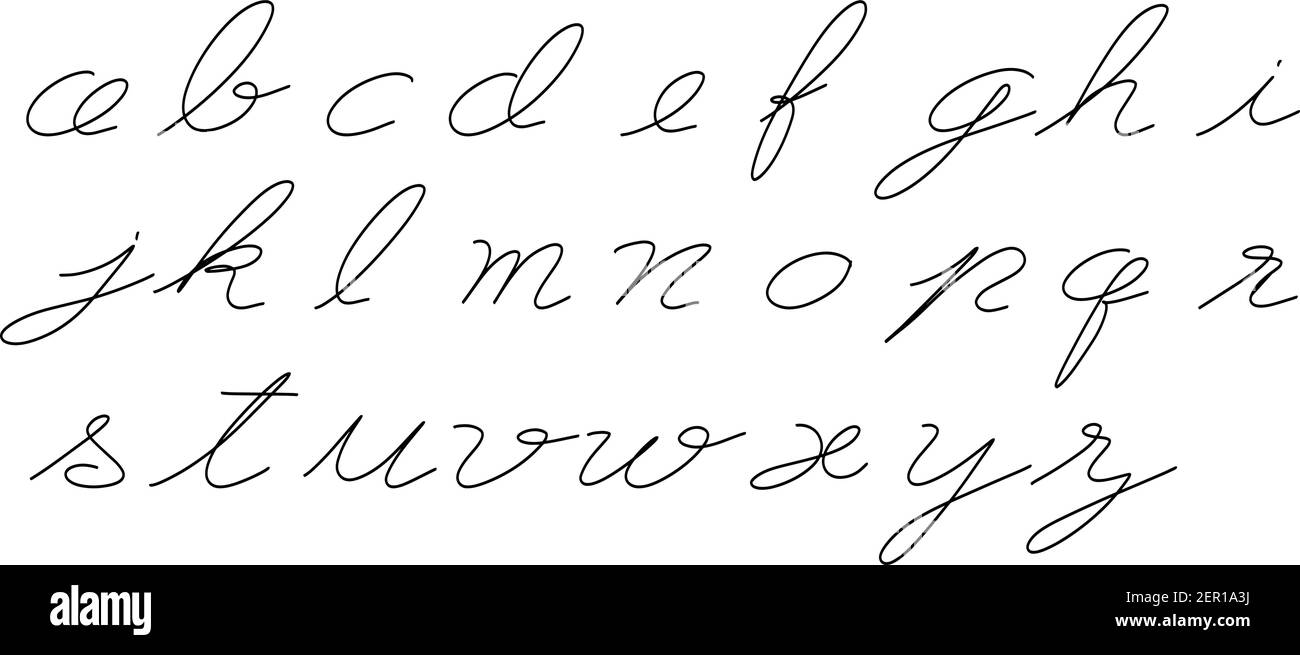 a b c d e f g h i
j k l m n o p q r
s t u v w x y z
alamy
Image ID: 2ER1A3J
www.alamy.com